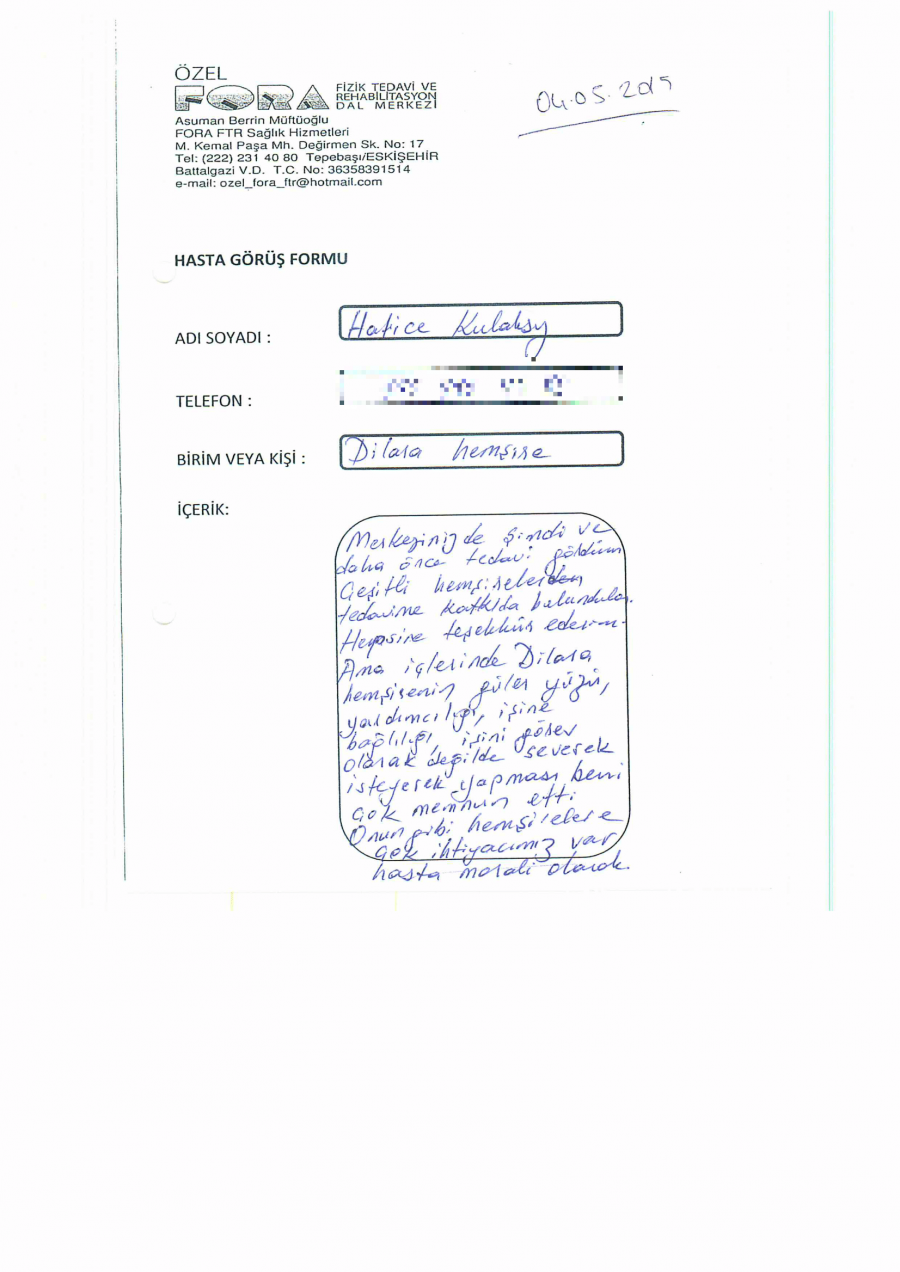 ÖZEL
FORA FİZİK TEDAVİ VE
REHABİLİTASYON
DAL MERKEZİ
Asuman Berrin Müftüoğlu
FORA FTR Sağlık Hizmetleri
M. Kemal Paşa Mh. Değirmen Sk. No: 17
Tel: (222) 231 40 80 Tepebaşı/ESKİŞEHİR
Battalgazi V.D. T.C. No: 36358391514
e-mail: ozel_fora_ftr@hotmail.com
04.05.2015
HASTA GÖRÜŞ FORMU
ADI SOYADI : Hatice Kulaksy
TELEFON :
BİRİM VEYA KİŞİ : Dilara hemşire
İÇERİK:
Merkeziniz de şimdi ve
daha önce tedavi gördüm
Çeşitli hemşirelerden
tedavime katkıda bulundular.
Hepsine teşekkür ederim.
Ama içlerinde Dilara
hemşirenin güler yüzü,
yardımcılığı, işine
bağlılığı, işini görev
olarak değilde severek
isteyerek yapması beni
çok memnun etti
Onun gibi hemşirelere
çok ihtiyacımız var
hasta morali olarak.